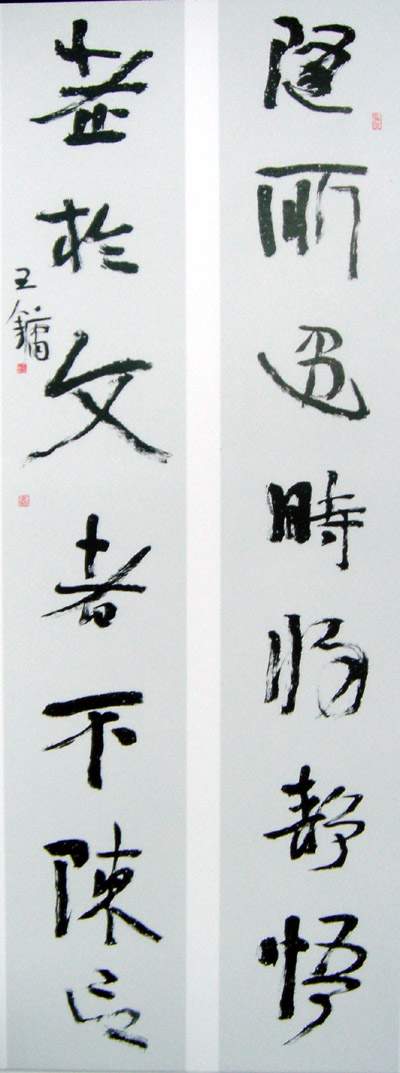 隨所遇時將靜悟
老於文者不陳言
王鏞